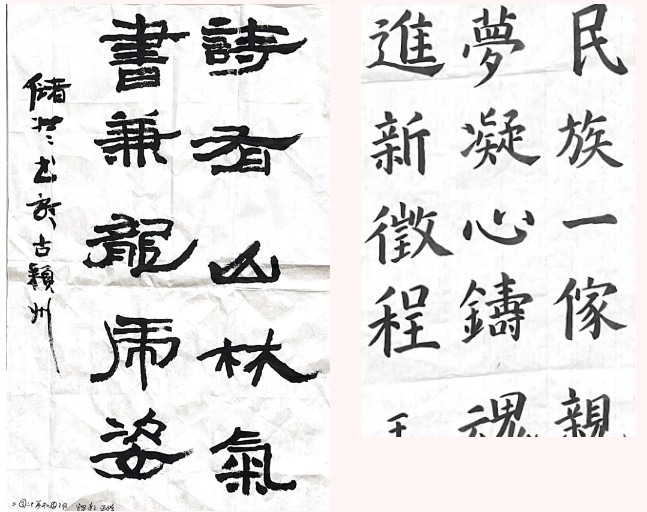 詩有山林氣
書兼龍虎姿
儲 书於古穎州
民族一傢親
夢凝心鑄魂
進新徵程